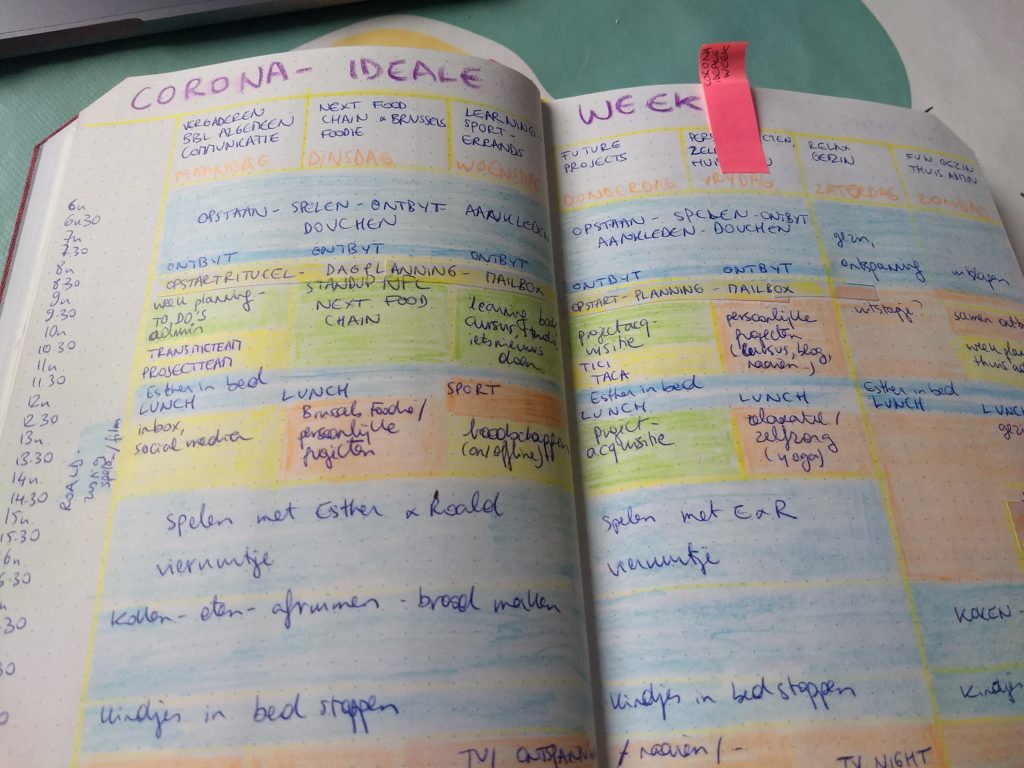 CORONA - IDEALE WEEK
CORONA
IDEALE
WEEK
VERGADEREN
BBL ALGEMEEN
COMMUNICATIE
MAANDAG
NEXT FOOD
CHAIN & BRUSSELS
FOODIE
DINSDAG
LEARNING
SPORT -
ERRANDS
WOENSDAG
FUTURE
PROJECTS
DONDERDAG
VRYDAG
RELAX
GEZIN
ZATERDAG
FUN GEZIN
THUIS ADMIN
ZONDAG
6u
6u30
7u
7.30
8u
8.30
9u
9.30
10u
10.30
11u
11.30
12u
12.30
13u
13.30
14u
14.30
15u
15.30
6u
6.30
.30
30
OPSTAAN - SPELEN - ONTBYT - AANKLEDEN
DOUCHEN
ONTBYT ONTBYT ONTBYT
OPSTARTRITUEEL - DAGPLANNING - MAILBOX
week planning -
TO DO'S
admin
TRANSITIETEAM
PROJECTTEAM
STANDUP NFC
NEXT FOOD
CHAIN
learning
cursus
iets nieuws
doen
Esther in bed
LUNCH
LUNCH
SPORT
inbox,
social media
Brussels Foodie /
persoonlijke
projecten
boodschappen
(on/offline)
ROALD
film
Spelen met Esther & Roald
vieruurtje
Koken - eten - afruimen - brood maken
Kindjes in bed stoppen
TV / ONTSPANN
OPSTAAN - SPELEN - ONTBYT
AANKLEDEN - DOUCHEN
ONTBYT ONTBYT
OPSTART - PLANNING - MAILBOX
projectacq-
uisitie
TICI
TACA
persoonlijke
projecten
(cursus, blog,
naaien...)
Esther in bed
LUNCH
LUNCH
project-
acquisitie
relaxatie /
zelfzorg
(yoga)
gezin,
ontspanning
uitslapen
uitstapje?
samen
week plan
thuis ad
Esther in bed
LUNCH
LUNC
gez
Spelen met E & R
vieruurtje
KOKEN -
Kindjes in bed stoppen
Kindje
/ naaien / -
TV NIGHT